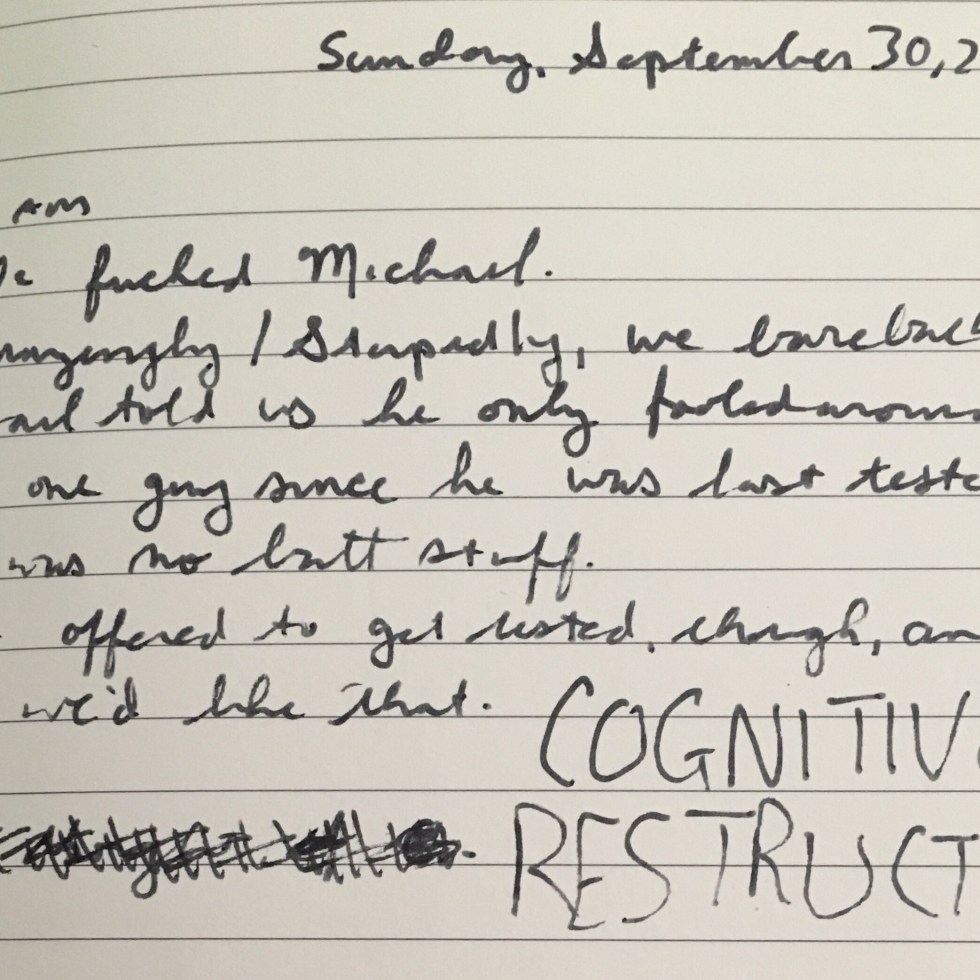 Sunday, September 30, 2
AM
fucked Michael.
/ Stupidly, we bareback
told us he only fooled aroun
one guy since he was last teste
was no butt stuff.
offered to get tested, though, an
we'd like that.
COGNITIV
RESTRUCT